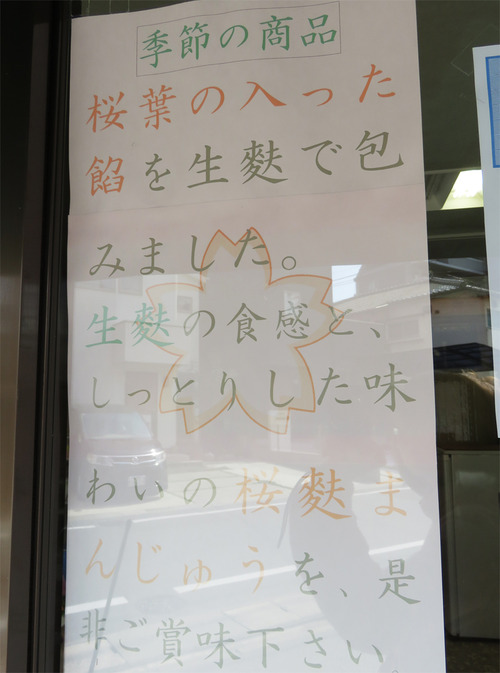 季節の商品
桜葉の入った
餡を生麩で包
みました。
生麩の食感と、
しっとりした味
わいの桜麩ま
んじゅうを、是
非ご賞味下さい。